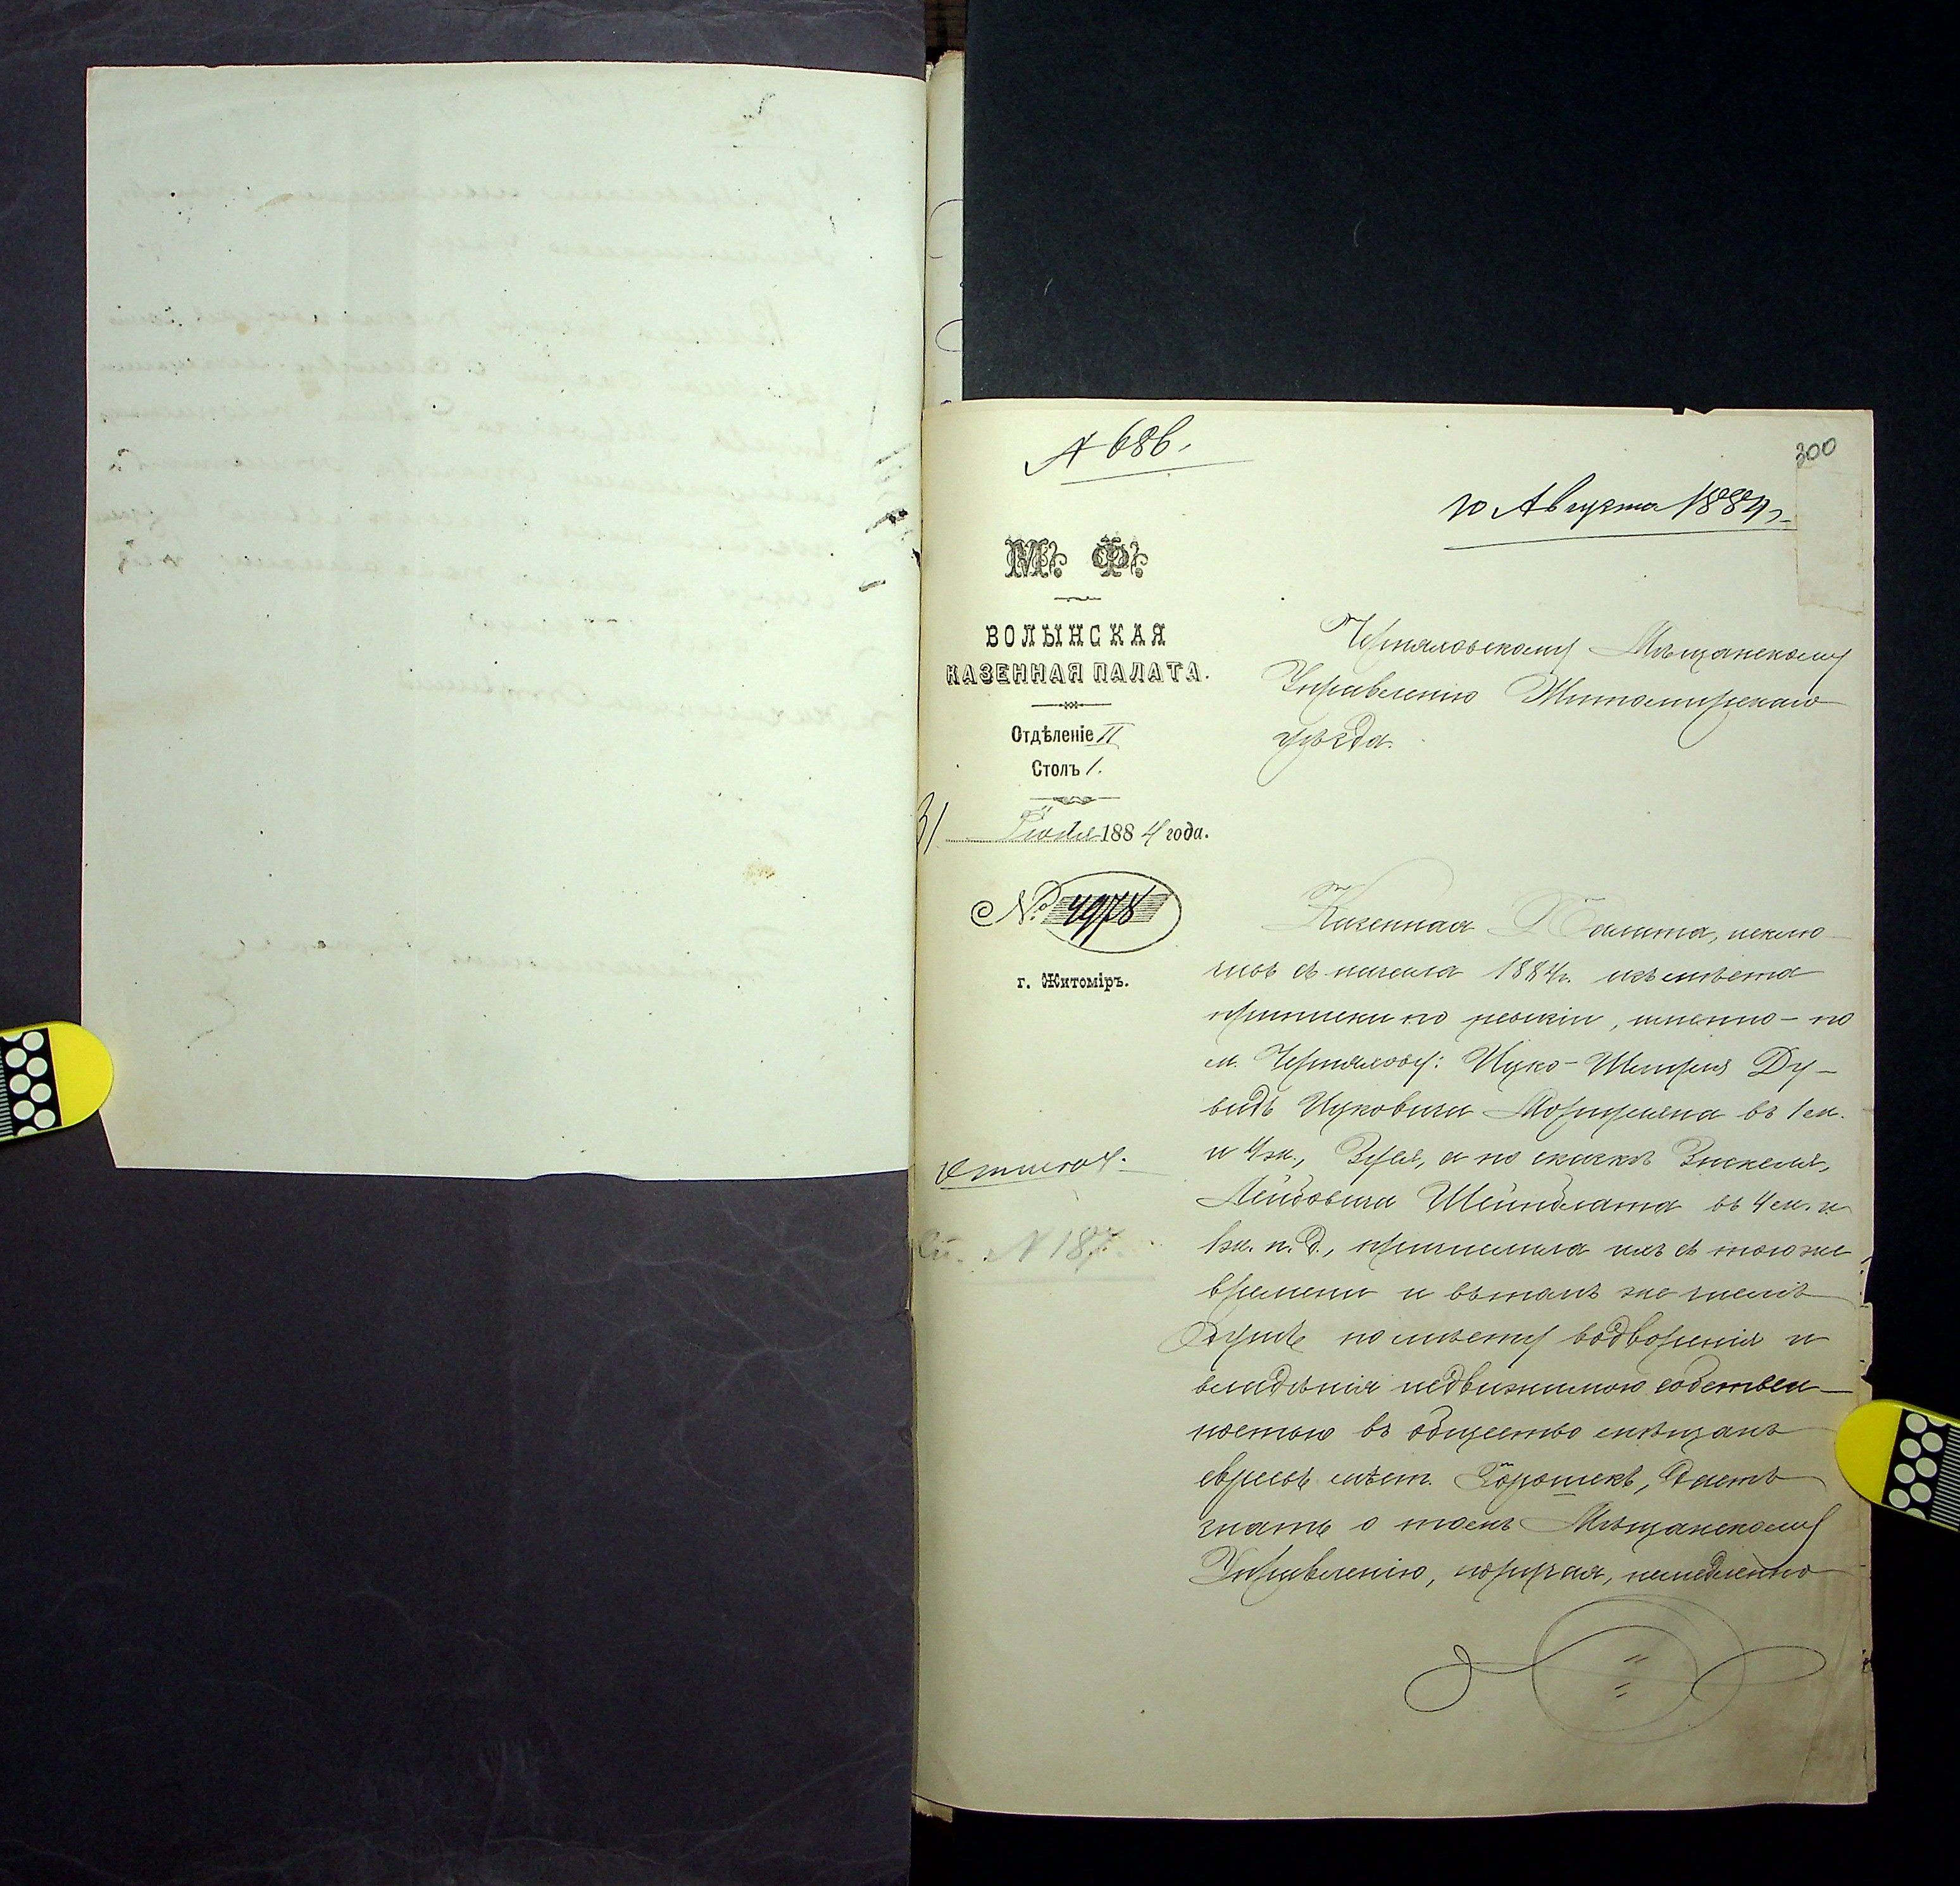 № 686.
300
10 Августа 1884 г.
М. Ф.
ВОЛЫНСКАЯ
КАЗЕННАЯ ПАЛАТА.
Отдѣленіе II
Столъ 1.
31 Іюля 1884 года.
№ 4978
г. Житоміръ.
Черняховскому Мѣщанскому
Управленію Житомирскаго
уѣзда.
Казенная Палата, исклю-
чивъ съ начала 1884 г. изъ мѣста
приписки по ревизіи, именно - по
м. Черняхову: Ицко-Шмуля Ду-
видъ Ицковича в 1 м.
и 4 ж., а по сказкѣ
Лейбовича Шейнблата въ 4 м. и
1 ж. п. д., причислила ихъ съ того же
времени и въ томъ же числѣ
душъ по мѣсту водворенія и
владѣнія недвижимою собствен-
ностью въ общество мѣщанъ
евреевъ мѣст. Горошекъ, даетъ
знать о томъ Мѣщанскому
Управленію, поручая, немедленно
№ 187.